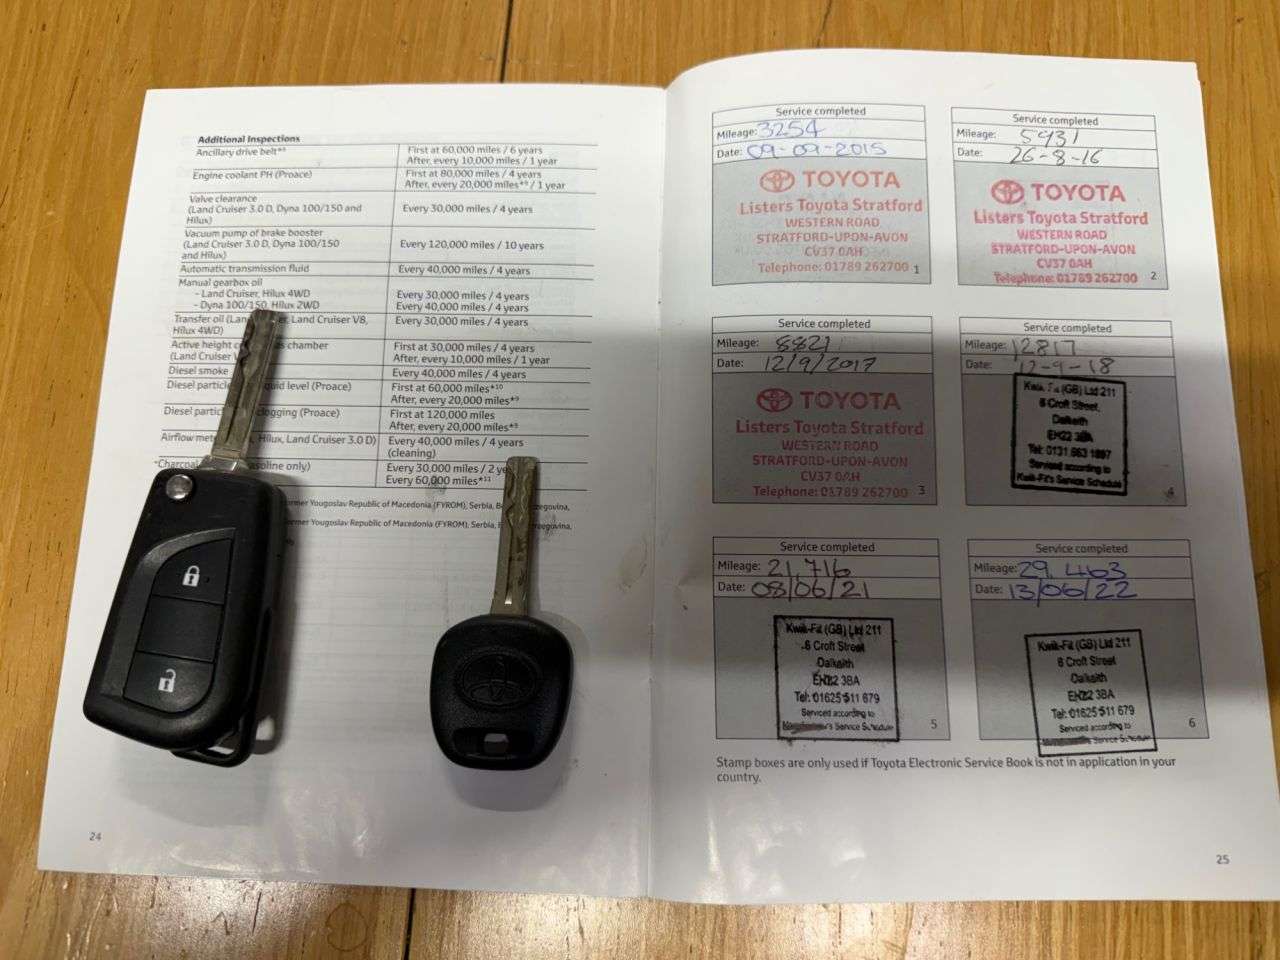 Additional Inspections
Ancillary drive belt*³
First at 60,000 miles / 6 years
After, every 10,000 miles / 1 year
Engine coolant PH (Proace)
First at 80,000 miles / 4 years
After, every 20,000 miles*⁹ / 1 year
Valve clearance
(Land Cruiser 3.0 D, Dyna 100/150 and
Hilux)
Every 30,000 miles / 4 years
Vacuum pump of brake booster
(Land Cruiser 3.0 D, Dyna 100/150
and Hilux)
Every 120,000 miles / 10 years
Automatic transmission fluid
Every 40,000 miles / 4 years
Manual gearbox oil
- Land Cruiser, Hilux 4WD
- Dyna 100/150, Hilux 2WD
Every 30,000 miles / 4 years
Every 40,000 miles / 4 years
Transfer oil (Land Cruiser V8,
Hilux 4WD)
Every 30,000 miles / 4 years
Active height chamber
(Land Cruiser
First at 30,000 miles / 4 years
After, every 10,000 miles / 1 year
Diesel smoke
Every 40,000 miles / 4 years
Diesel level (Proace)
First at 60,000 miles*¹⁰
After, every 20,000 miles*⁹
Diesel clogging (Proace)
First at 120,000 miles
After, every 20,000 miles*⁹
Airflow Hilux, Land Cruiser 3.0 D)
Every 40,000 miles / 4 years
(cleaning)
Charcoal only)
Every 30,000 miles / 2
Every 60,000 miles*¹¹
Yougoslav Republic of Macedonia (FYROM), Serbia,
Yougoslav Republic of Macedonia (FYROM), Serbia,
24
Service completed
Mileage: 3254
Date: 09-09-2015
TOYOTA
Listers Toyota Stratford
WESTERN ROAD
STRATFORD-UPON-AVON
CV37 0AH
Telephone: 01789 262700
1
Service completed
Mileage: 5931
Date: 26-8-16
TOYOTA
Listers Toyota Stratford
WESTERN ROAD
STRATFORD-UPON-AVON
CV37 0AH
Telephone: 01789 262700
2
Service completed
Mileage: 8821
Date: 12/9/2017
TOYOTA
Listers Toyota Stratford
WESTERN ROAD
STRATFORD-UPON-AVON
CV37 0AH
Telephone: 01789 262700
3
Service completed
Mileage: 12817
Date: 12-9-18
Kwik-Fit (GB) Ltd 211
6 Croft Street,
Dalkeith
EH22 3BA
Tel: 0131 663 1897
Serviced according to
Kwik-Fit's Service Schedule
4
Service completed
Mileage: 21,716
Date: 08/06/21
Kwik-Fit (GB) Ltd 211
6 Croft Street
Dalkeith
EH22 3BA
Tel: 01625 511 679
Serviced according to
Manufacturer's Service Schedule
5
Service completed
Mileage: 29,463
Date: 13/06/22
Kwik-Fit (GB) Ltd 211
6 Croft Street
Dalkeith
EH22 3BA
Tel: 01625 511 679
Serviced according to
Service Schedule
6
Stamp boxes are only used if Toyota Electronic Service Book is not in application in your
country.
25